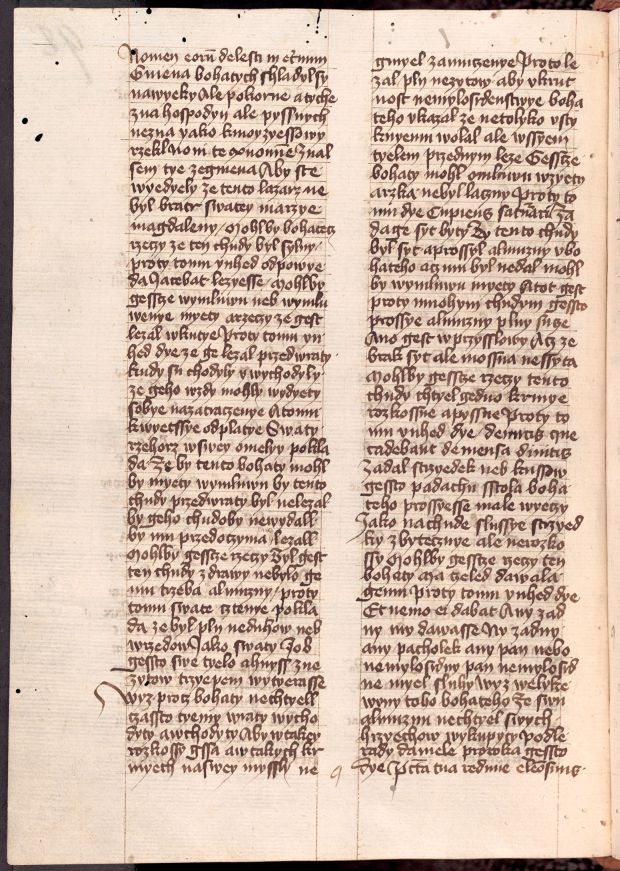 Nomen eorū delesti in et̄nnm
Gmena bohatych shladyl sy
nawyeky Ale pokorne a tyche
zna hospodyn ale pyssnych
nezna yako k moyzyessowy
rzekl Noui te ex nomine Znal
sem tye ze gmena Aby ste
wyedyely ze tento lazar ne
byl bratr swatey marzye
magdaleny Mohlby bohatecz
rzeczy ze ten chudy byl sylny
proty tomu ynhed odpowye
da Jacebat lezyesse Mohlby
gessce wymluwu neb wymlu
wenye myety a rzeczy ze gest
lezal w kutye Proty tomu yn
hed dye ze ge lezal przed wraty
kudy su chodyly y wychodyly
ze geho wzdy mohly wydyety
sobye na zatraczenye A tomu
k wyetssye odplatye Swaty
rzehorz w swey omelyy pokla
da Ze by tento bohaty mohl
by myety wymluwu by tento
chudy przed wraty byl nelezal
by geho chudoby newydall
by mu przed oczyma lezall
Mohlby gessce rzeczy Byl gest
ten chudy zdrawy nebylo ge
mu trzeba almuzny proty
tomu swate cztenye pokla
da ze byl pln neduhow neb
wrzedow Jako swaty Job
gessto swe tyelo a hnyss z ne
zytow trzyepem wytyerasse
Wyz proč bohaty nechtyell
czassto tyemy wraty wycho
dyty a wchodyty Aby w takey
rozkossy gssa a w takych kr
myech na swey myssly ne
gmyel zarmuczenye Proto le
zal pln nezytow aby vkrut
nost nemylosrdenstwye boha
teho vkazal ze netolyko vsty
knyemu wolal ale wssyem
tyelem przed nym leze Gessce
bohaty mohl omluwu wzyety
a rzka nebyl laczny Proty to
mu dye Cupiens saturari Za
dage syt byty By tento chudy
byl syt a prossyl almuzny v bo
hateho acz mu byl nedal mohl
by wymluwu myety A tot gest
proty mnohym chudym gessto
prossye almuzny plny suze
Ano gest w przysslowy Acz ze
brak syt ale mossna nessyta
Mohlby gessce rzeczy tento
chudy chtyel gedno krmye
rozkossne a pyssne Proty to
mu ynhed dye de micis que
cadebant de mensa diuitis
Zadal strzyedek neb krussow
gessto padachu s stola boha
teho prossyesse male wyeczy
Jako na chude slussye strzyed
ky zbyteczne ale nerozko
ssy Mohlby gessce rzeczy ten
bohaty Ma czeled dawala
gemu Proty tomu ynhed dye
Et nemo ei dabat Any zad
ny mu dawasse Ny zadny
any pacholek any pan nebo
nemylosrdny pan nemylosrd
ne myel sluhy Wyz welyke
wyny toho bohateho Ze swu
almuznu nechtyel swych
hrzyechow wykupyty podle
rady daniele proroka gessto
dye Pctā tua redime eleōsinis